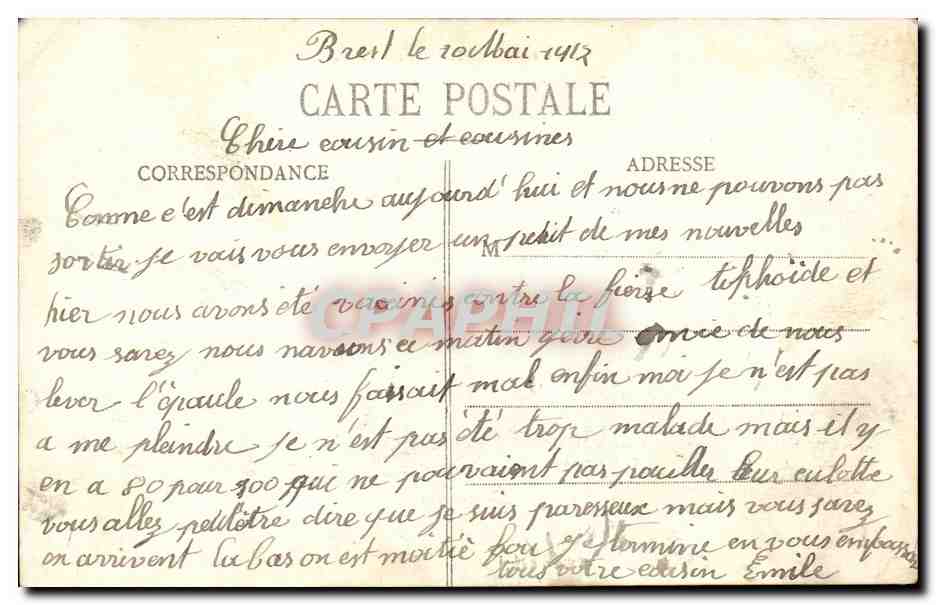 Brest le 20 Mai 1917
CARTE POSTALE
Chère cousin et cousines
CORRESPONDANCE
ADRESSE
Comme c'est dimanche aujourd'hui et nous ne pouvons pas
sortir je vais vous envoyer un petit de mes nouvelles
M
hier nous avons été vacinés contre la fierse tiphoïde et
CPAPHIL
vous savez nous navions ce matin guère envie de nous
lever l'épaule nous faisait mal enfin moi je n'est pas
a me pleindre je n'est pas été trop malade mais il y
en a 80 pour 100 qui ne pouvaient pas pouiller leur culotte
vous allez peutêtre dire que je suis paresseux mais vous savez
en arrivent la bas on est moitié fou je termine en vous embrassant
tous votre cousin Emile